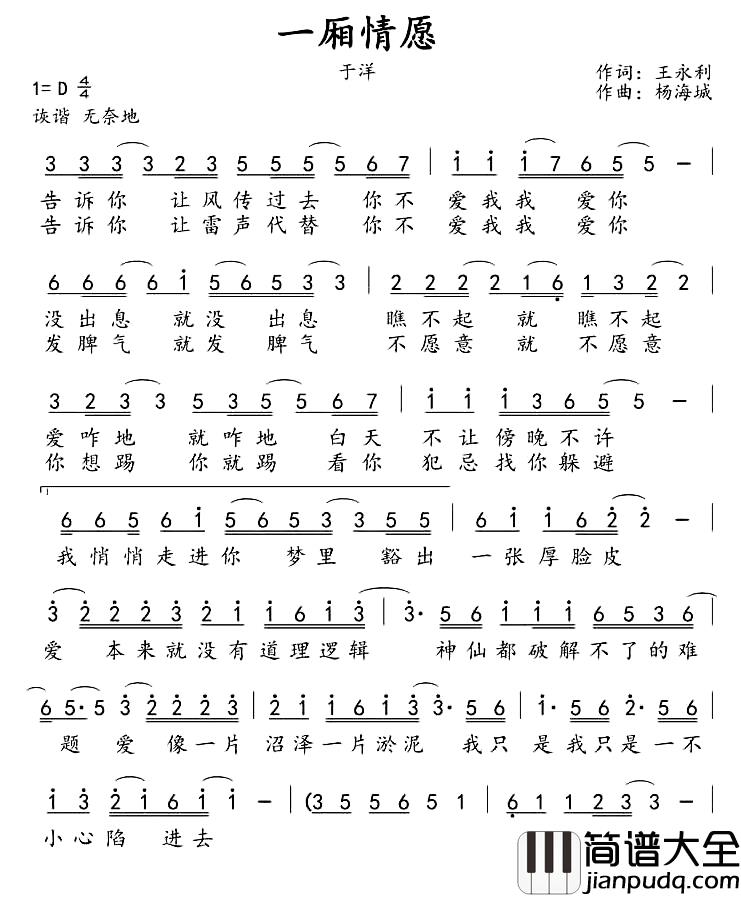 一厢情愿
于洋
1= D 4/4
作词：王永利
作曲：杨海城
诙谐 无奈地
3 3 3 3 2 3 5 5 5 5 6 7 | i i i 7 6 5 5 － |
告诉你 让风传过去 你不 爱我我 爱你
告诉你 让雷声代替 你不 爱我我 爱你
6 6 6 6 i 5 6 5 3 3 | 2 2 2 2 1 6 1 3 2 2 |
没出息 就没 出息 瞧不起 就 瞧不起
发脾气 就发 脾气 不愿意 就 不愿意
3 2 3 3 5 3 5 5 6 7 | i i i 3 6 5 5 － |
爱咋地 就咋地 白天 不让傍晚不许
你想踢 你就踢 看你 犯忌找你躲避
1
6 6 5 6 i 5 6 5 3 3 5 5 | 6 i i 6 2 2 － |
我悄悄走进你 梦里 豁出 一张厚脸皮
3 2 2 2 3 2 i i 6 i 3 | 3· 5 6 i i i 6 5 3 6 |
爱 本来就没有道理逻辑 神仙都破解不了的难
6 5· 5 3 2 2 2 3 | 2 i i 6 i 3 3· 5 6 | i· 5 6 2· 5 6 |
题 爱 像一片 沼泽一片淤泥 我只 是我只是一不
i 3 2 i 6 i i － | (3 5 5 6 5 1 | 6 1 2 3 3 －
小心陷 进去
简谱大全
jianpudq.com